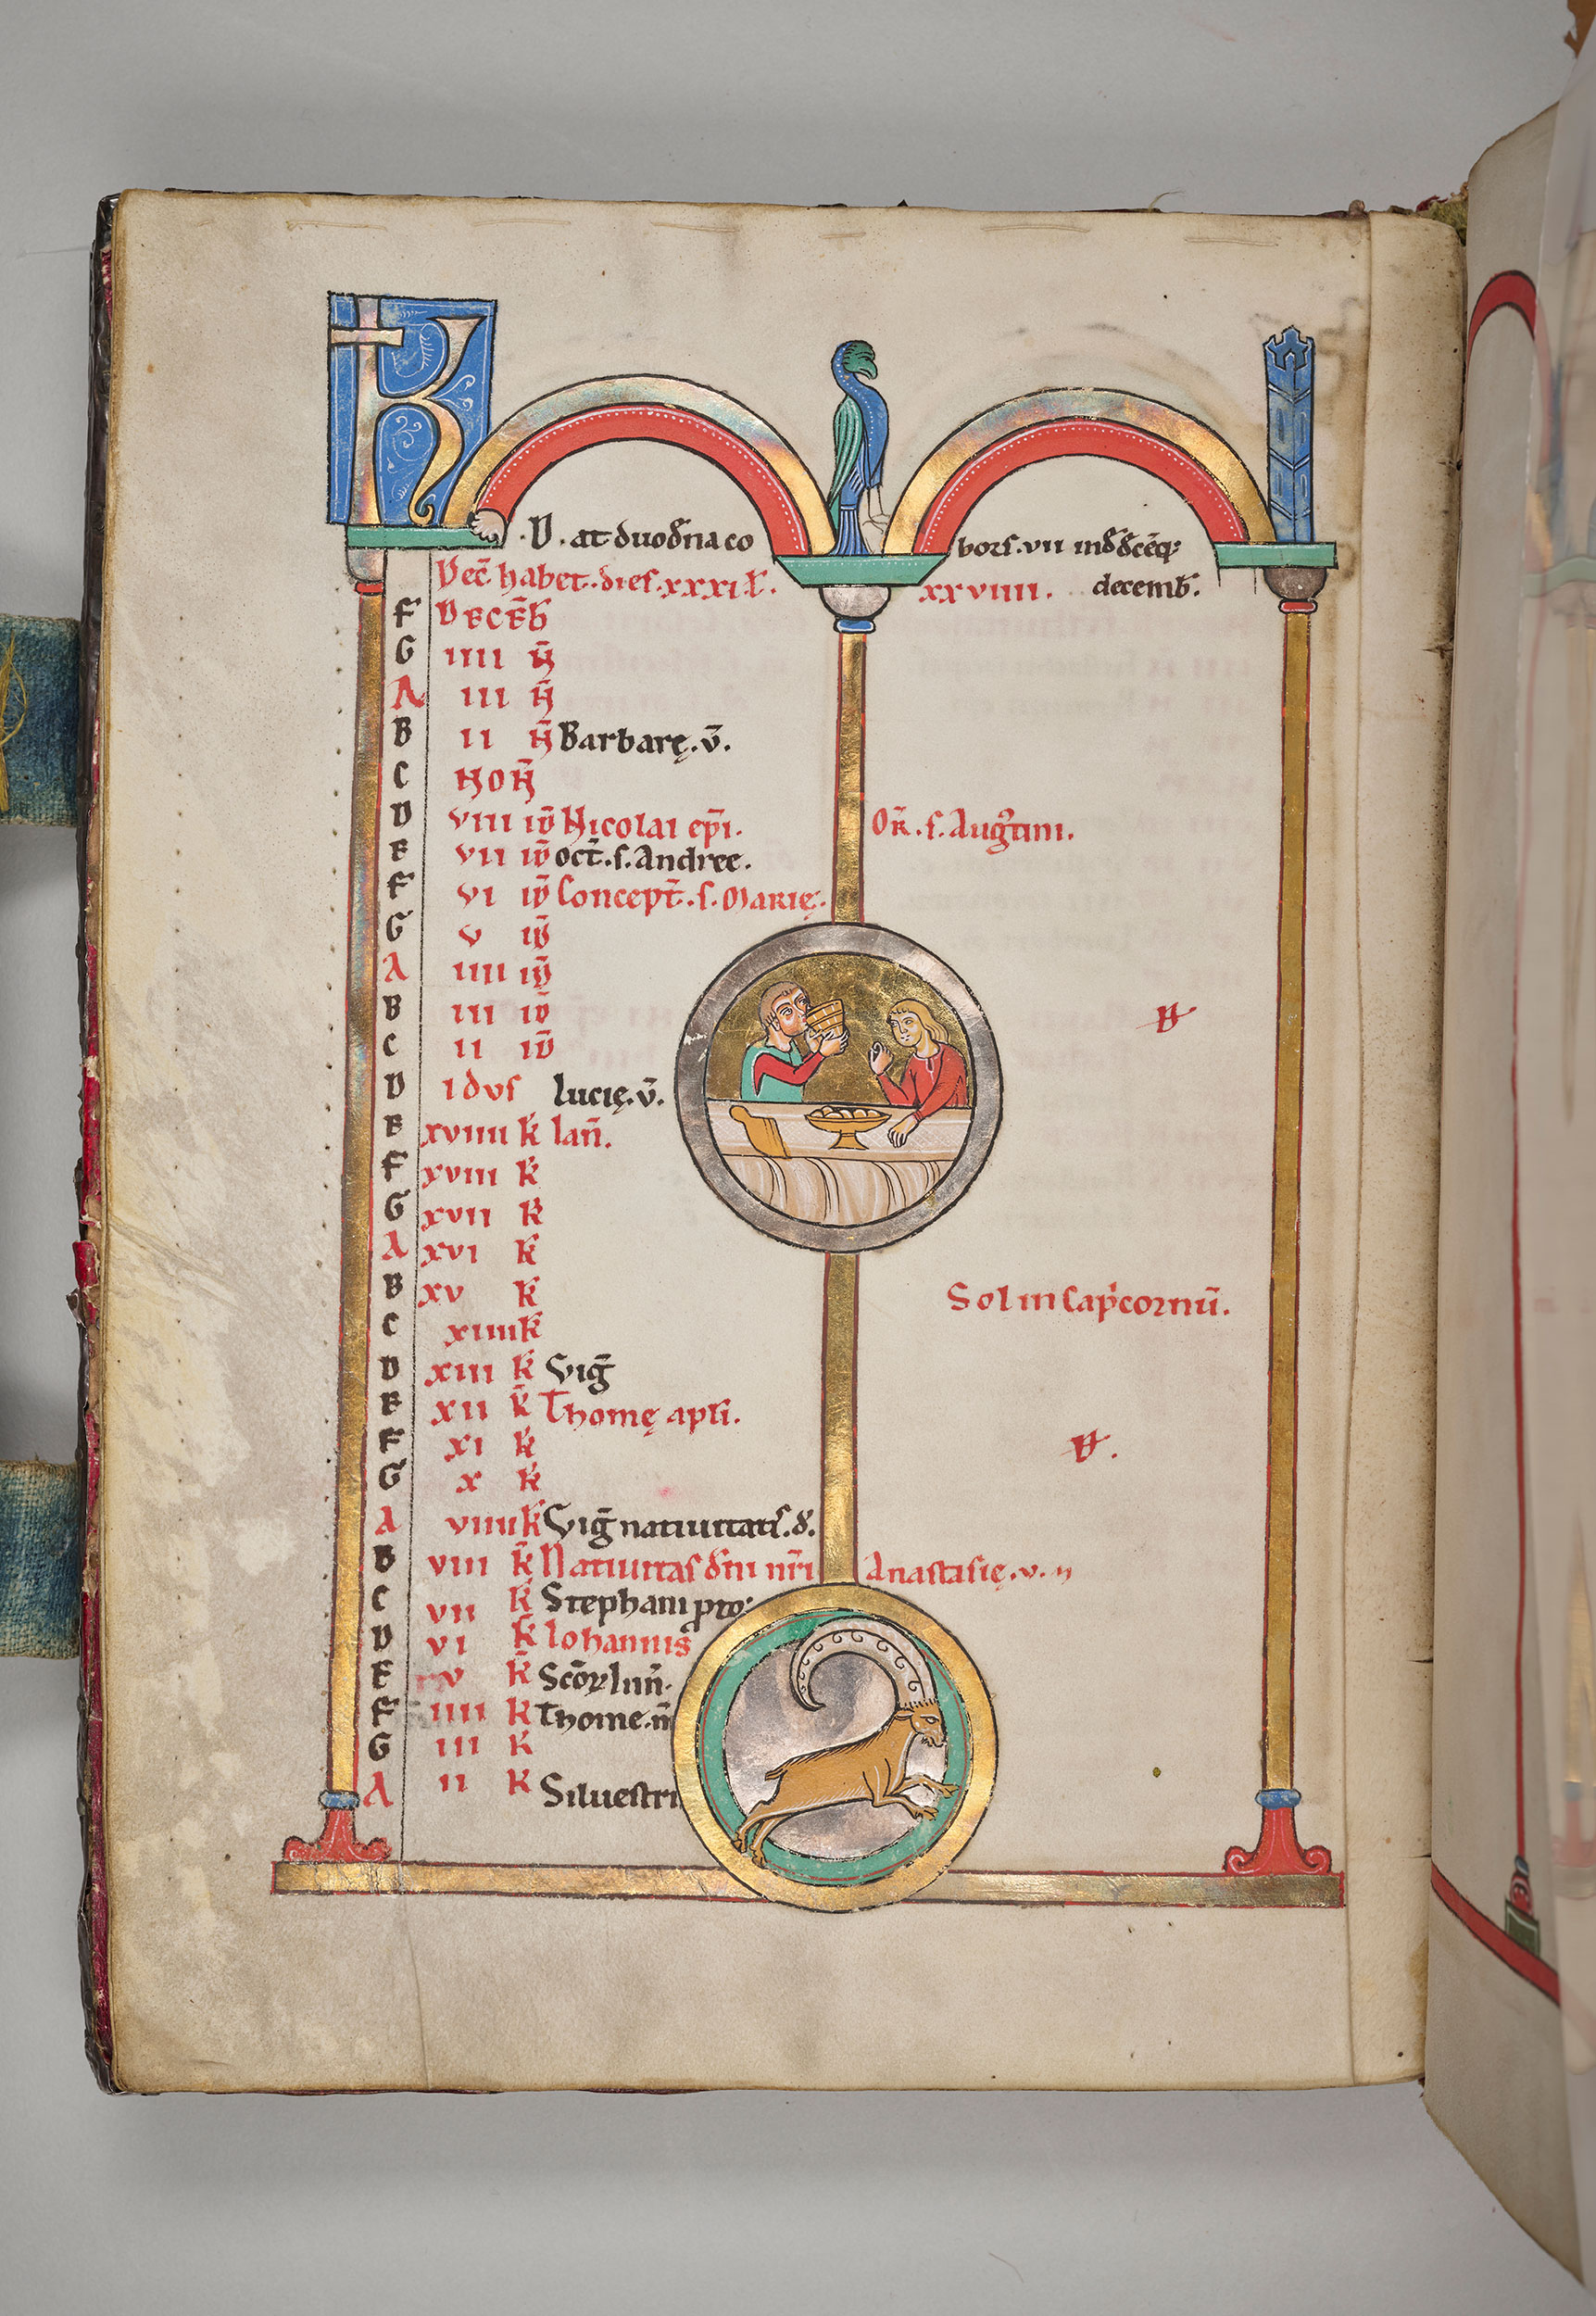 K
.D. at duodna co bors. vii inddcēq;
Deč habet. dies. xxxi. l. xxviiii. decemb.
F DECEB̄
G iiii N̄
A iii N̄
B ii N̄ Barbarę. v̄.
C NON̄
D viii id̄ Nicolai epi. Or̄. s. Augustini.
E vii id̄ oct̄. s. Andree.
F vi id̄ Concept̄. s. Marię.
G v id̄
A iiii id̄
B iii id̄
C ii id̄
D idus lucię. v̄.
E xviiii k̄ Ian̄.
F xviii k̄
G xvii k̄
A xvi k̄
B xv k̄ Sol in Cap'cornū.
C xiiii k̄
D xiii k̄ Vig̃
E xii k̄ Thomę apłi.
F xi k̄
G x k̄
A viiii k̄ Vig̃ natiuitatis. d.
B viii k̄ Natiuitas dn̄i nr̄i Anastasię. v.
C vii k̄ Stephani pro:
D vi k̄ Iohannis
E v k̄ Scōꝝ Inn̄.
F iiii k̄ Thome. m̄
G iii k̄
A ii k̄ Siluestri